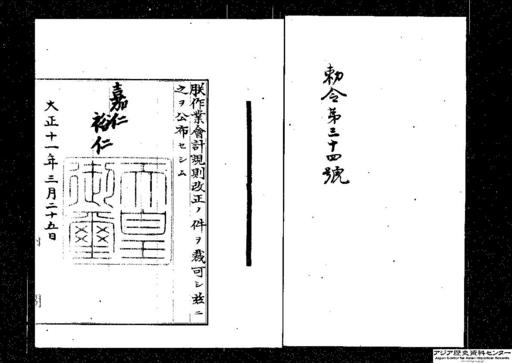 勅令第三十四號
朕作業會計規則改正ノ件ヲ裁可シ茲ニ
之ヲ公布セシム
嘉仁
裕仁
天皇
御璽
大正十一年三月二十五日
アジア歴史資料センター
Japan Center for Asian Historical Records